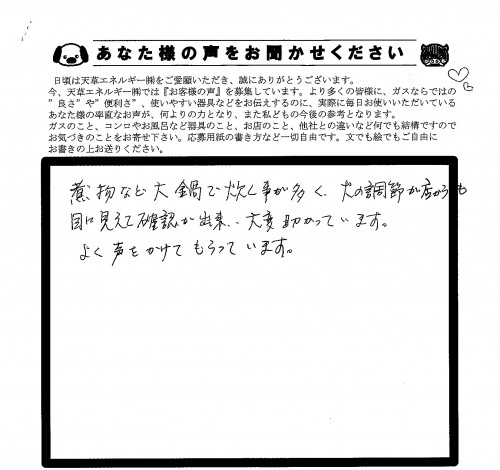 あなた様の声をお聞かせください
日頃は天草エネルギー㈱をご愛願いただき、誠にありがとうございます。
今、天草エネルギー㈱では『お客様の声』を募集しています。より多くの皆様に、ガスならではの
”良さ”や”便利さ”、使いやすい器具などをお伝えするのに、実際に毎日お使いいただいている
あなた様の率直なお声が、何よりの力となり、また私どもの今後の参考となります。
ガスのこと、コンロやお風呂など器具のこと、お店のこと、他社との違いなど何でも結構ですので
お気づきのことをお寄せ下さい。応募用紙の書き方など一切自由です。文でも絵でもご自由に
お書きの上お送りください。
煮物など大鍋で炊く事が多く、火の調節が店からも
目に見えて確認が出来、大変助かっています。
よく声をかけてもらっています。